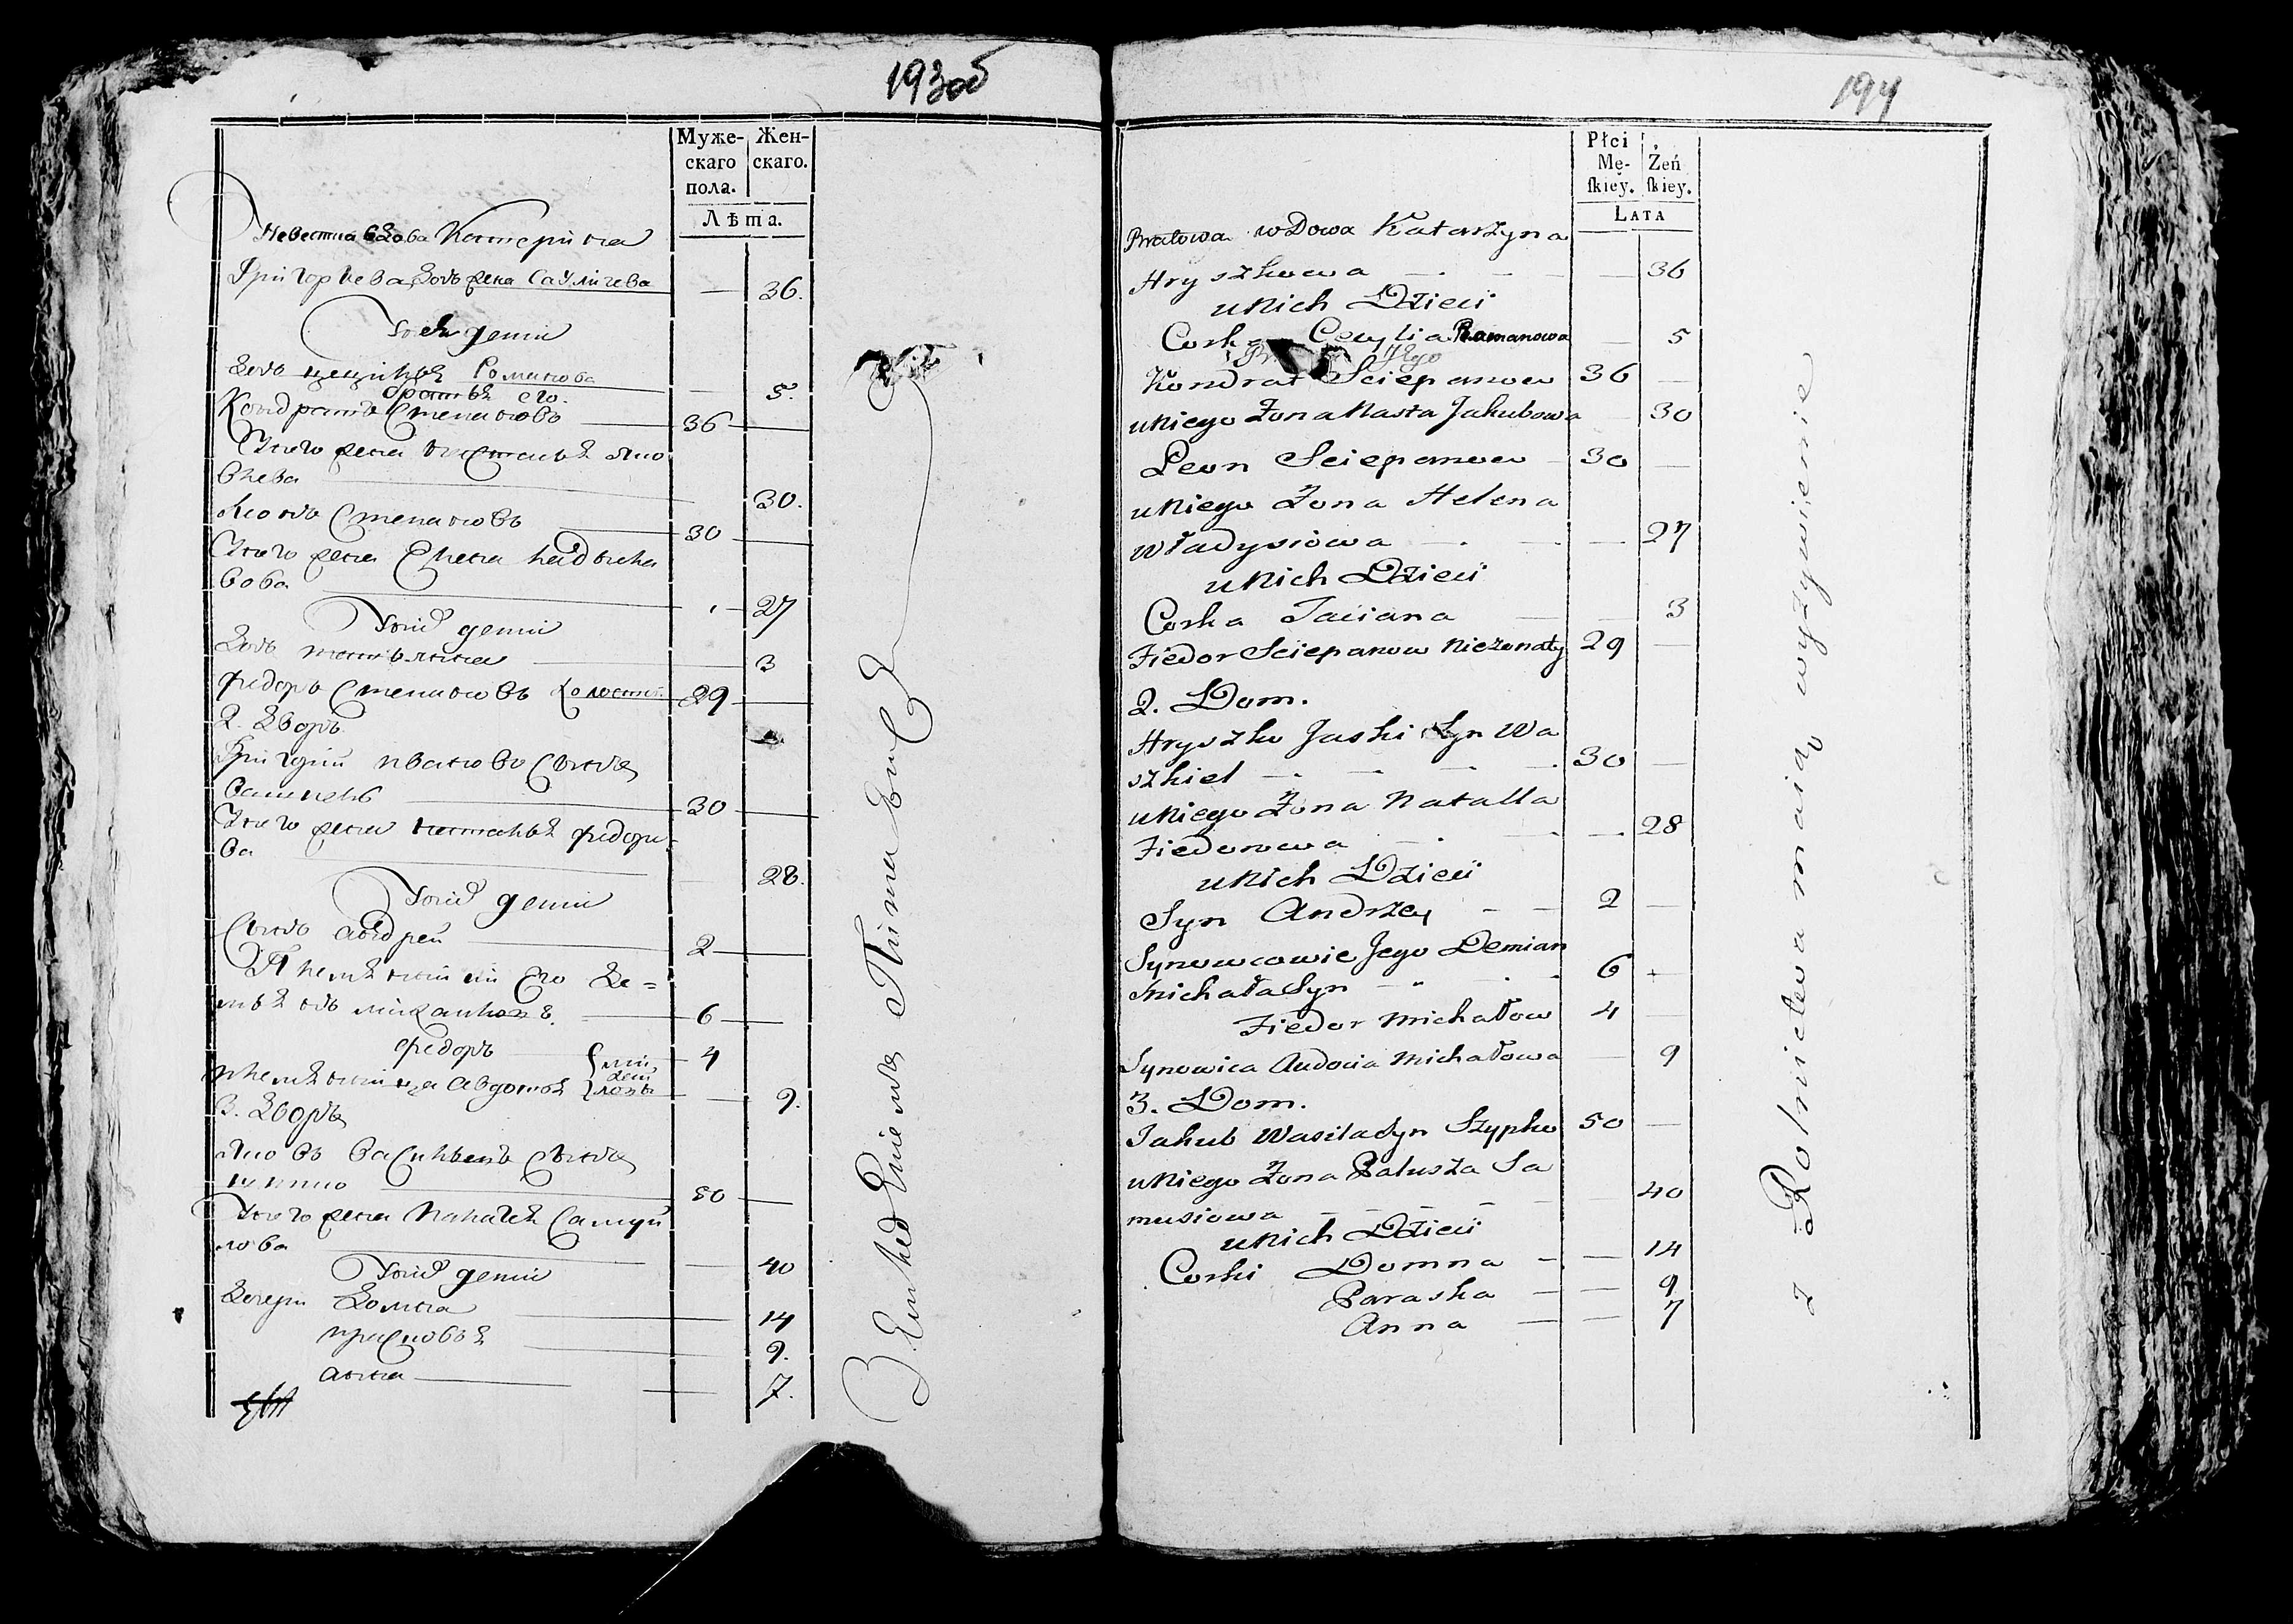 193об
Муже- Жен-
скаго скаго.
пола.
Лѣта.
Невестка вдова Катерина
Григорьева дочь
— 36.
дети
дочь Романова
— 5.
братъ его.
Кондратъ Степановъ — 36 —
У него жена Настасья Яко
влева
30.
Леонъ Степановъ — 30 —
У него жена Елена
вова
27
У них дети
Дочь татьяна — 3
Федоръ Степановъ холостъ 29 —
2. Дворъ
Григорий Ивановъ Сынъ
Вашкель — 30 —
У него жена Наталья Федоро-
ва
28.
У них дети
Сынъ андрей — 2 —
Племянники Его Де=
мьянъ — 6 —
Федоръ — 4
Племянница Авдотья — 9.
3. Дворъ
Яковъ Васильевъ Сынъ
Шипко — 50 —
У него жена Палагея Самуй
лова
40
У них дети
Дочери Домна — 14
Прасковья — 9.
анна — 7.
194
Płci
Mę- Żeń
ſkiey. ſkiey.
LATA
Bratowa wDowa Katarżyna
Hryszkowa — 36
u Nich Dzieci
Corka Cecylia Romanowa — 5
Jego
Kondrat Sciepanow 36 —
u Niego Żona Nasta Jakubowa 30
Leon Sciepanow 30 —
u Niego Żona Helena
Władysiowa — 27
u Nich Dzieci
Corka Taciana — 3
Fiedor Sciepanow Nieżonaty 29 —
2. Dom.
Hryszko Jaski Syn Wa
szkiel — 30 —
u Niego Żona Natalla
Fiedorowa — 28
u Nich Dzieci
Syn Andrzey — 2 —
Synowcowie Jego Demian
Michała Syn — 6
Fiedor Michałow 4 —
Synowica Audocia Michałowa — 9
3. Dom.
Jakub Wasila Syn Szypko 50 —
u Niego Żona Palusza Sa
musiowa — 40
u Nich Dzieci
Corki Domna — 14
Paraska — 9
Anna — 7
z Rolnictwa maią wyżywienie